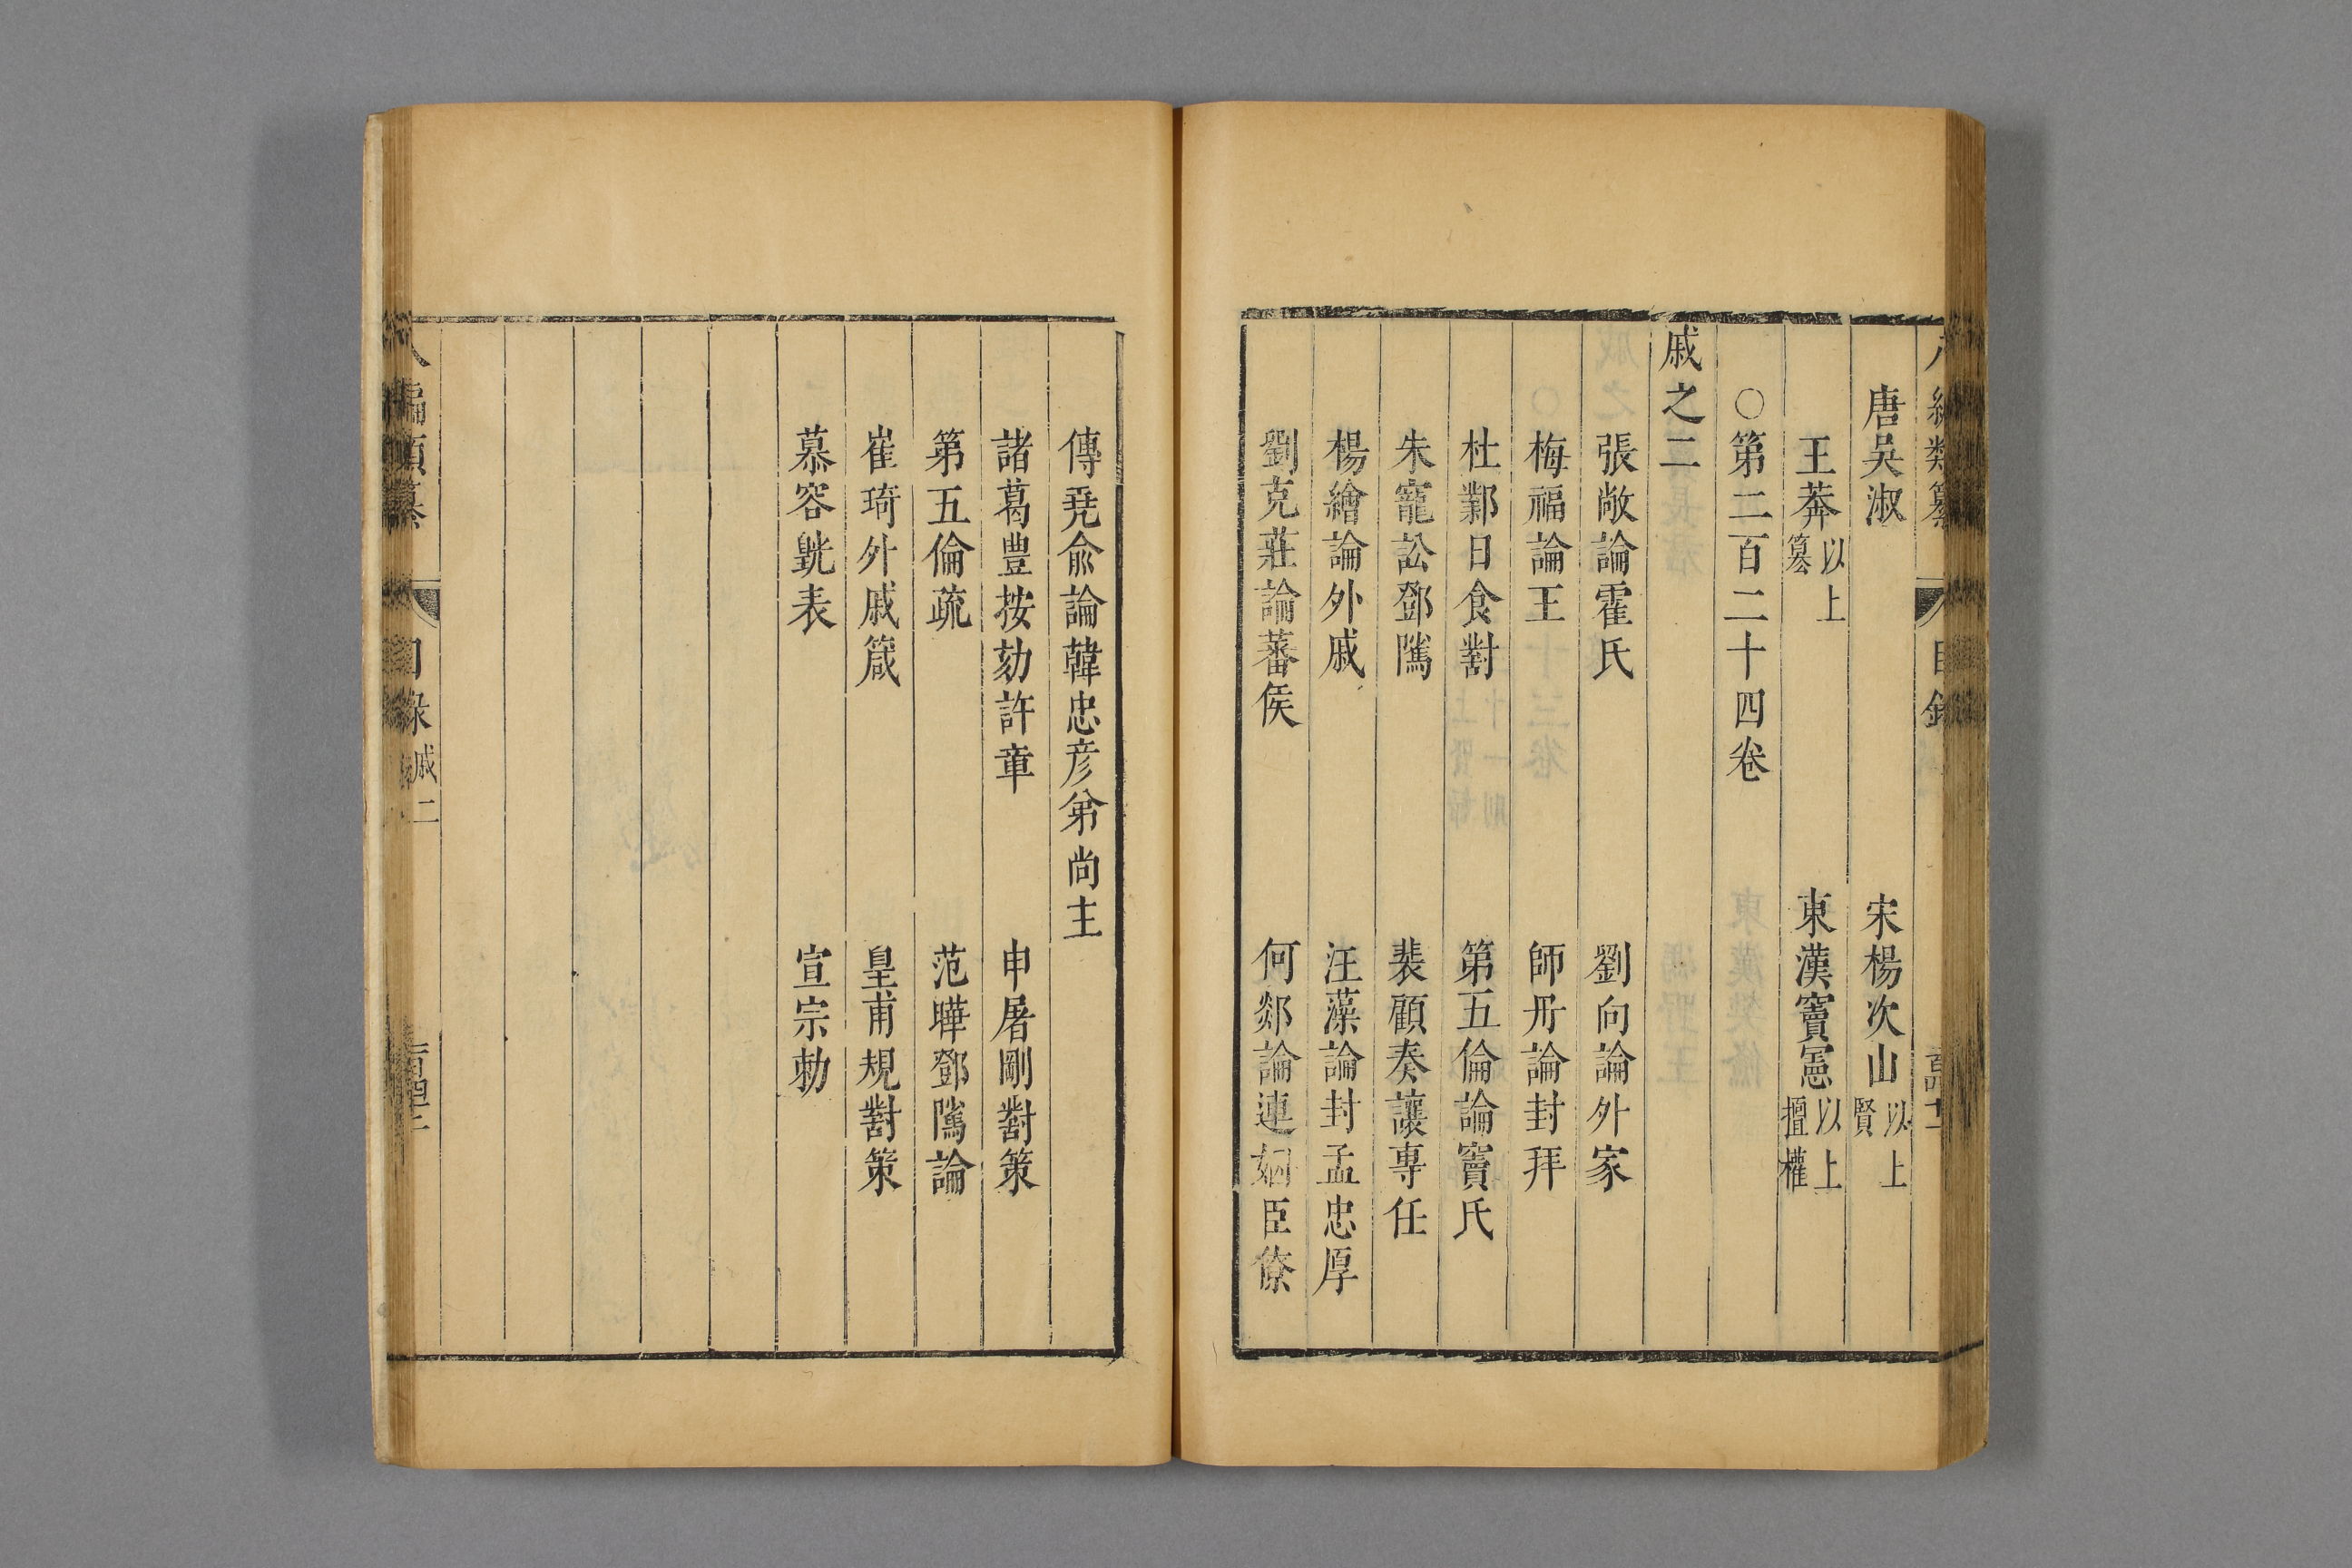 唐吳淑　宋楊次山以上賢
王莽以上篡　東漢竇憲以上擅權
○第二百二十四卷
戚之二
張敞論霍氏　劉向論外家
梅福論王　師丹論封拜
杜鄴日食對　第五倫論竇氏
朱寵訟鄧隲　裴顧奏讓專任
楊繪論外戚　汪藻論封孟忠厚
劉克莊論蕃侯　何郯論連姻臣僚
傳堯俞論韓忠彥弟尚主
諸葛豐按劾許章　申屠剛對策
第五倫疏　范曄鄧隲論
崔琦外戚箴　皇甫規對策
慕容皝表　宣宗勅
八編類纂　目錄 戚二